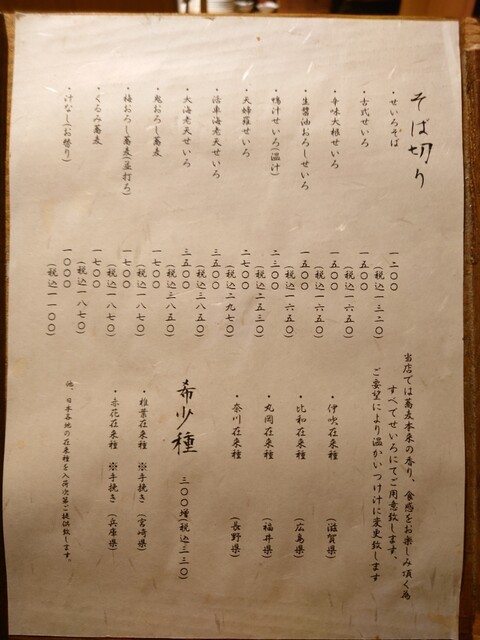 そば切り
・せいろそば 一二〇〇
(税込一三二〇)
・古式せいろ 一五〇〇
(税込一六五〇)
・辛味大根せいろ 一五〇〇
(税込一六五〇)
・生醤油おろしせいろ 一五〇〇
(税込一六五〇)
・鴨汁せいろ(温汁) 二三〇〇
(税込二五三〇)
・天婦羅せいろ 二七〇〇
(税込二九七〇)
・活車海老天せいろ 三五〇〇
(税込三八五〇)
・大海老天せいろ 三五〇〇
(税込三八五〇)
・鬼おろし蕎麦 一七〇〇
(税込一八七〇)
・梅おろし蕎麦(並打ち) 一七〇〇
(税込一八七〇)
・くるみ蕎麦 一七〇〇
(税込一八七〇)
・汁なし(お替り) 一〇〇〇
(税込一一〇〇)
当店では蕎麦本来の香り、食感をお楽しみ頂く為
すべてせいろにてご用意致します。
ご要望により温かいつけ汁に変更致します
・伊吹在来種 (滋賀県)
・比和在来種 (広島県)
・丸岡在来種 (福井県)
・奈川在来種 (長野県)
希少種 三〇〇増(税込三三〇)
・椎葉在来種 ※手挽き (宮崎県)
・赤花在来種 ※手挽き (兵庫県)
他、日本各地の在来種を入荷次第ご提供致します。